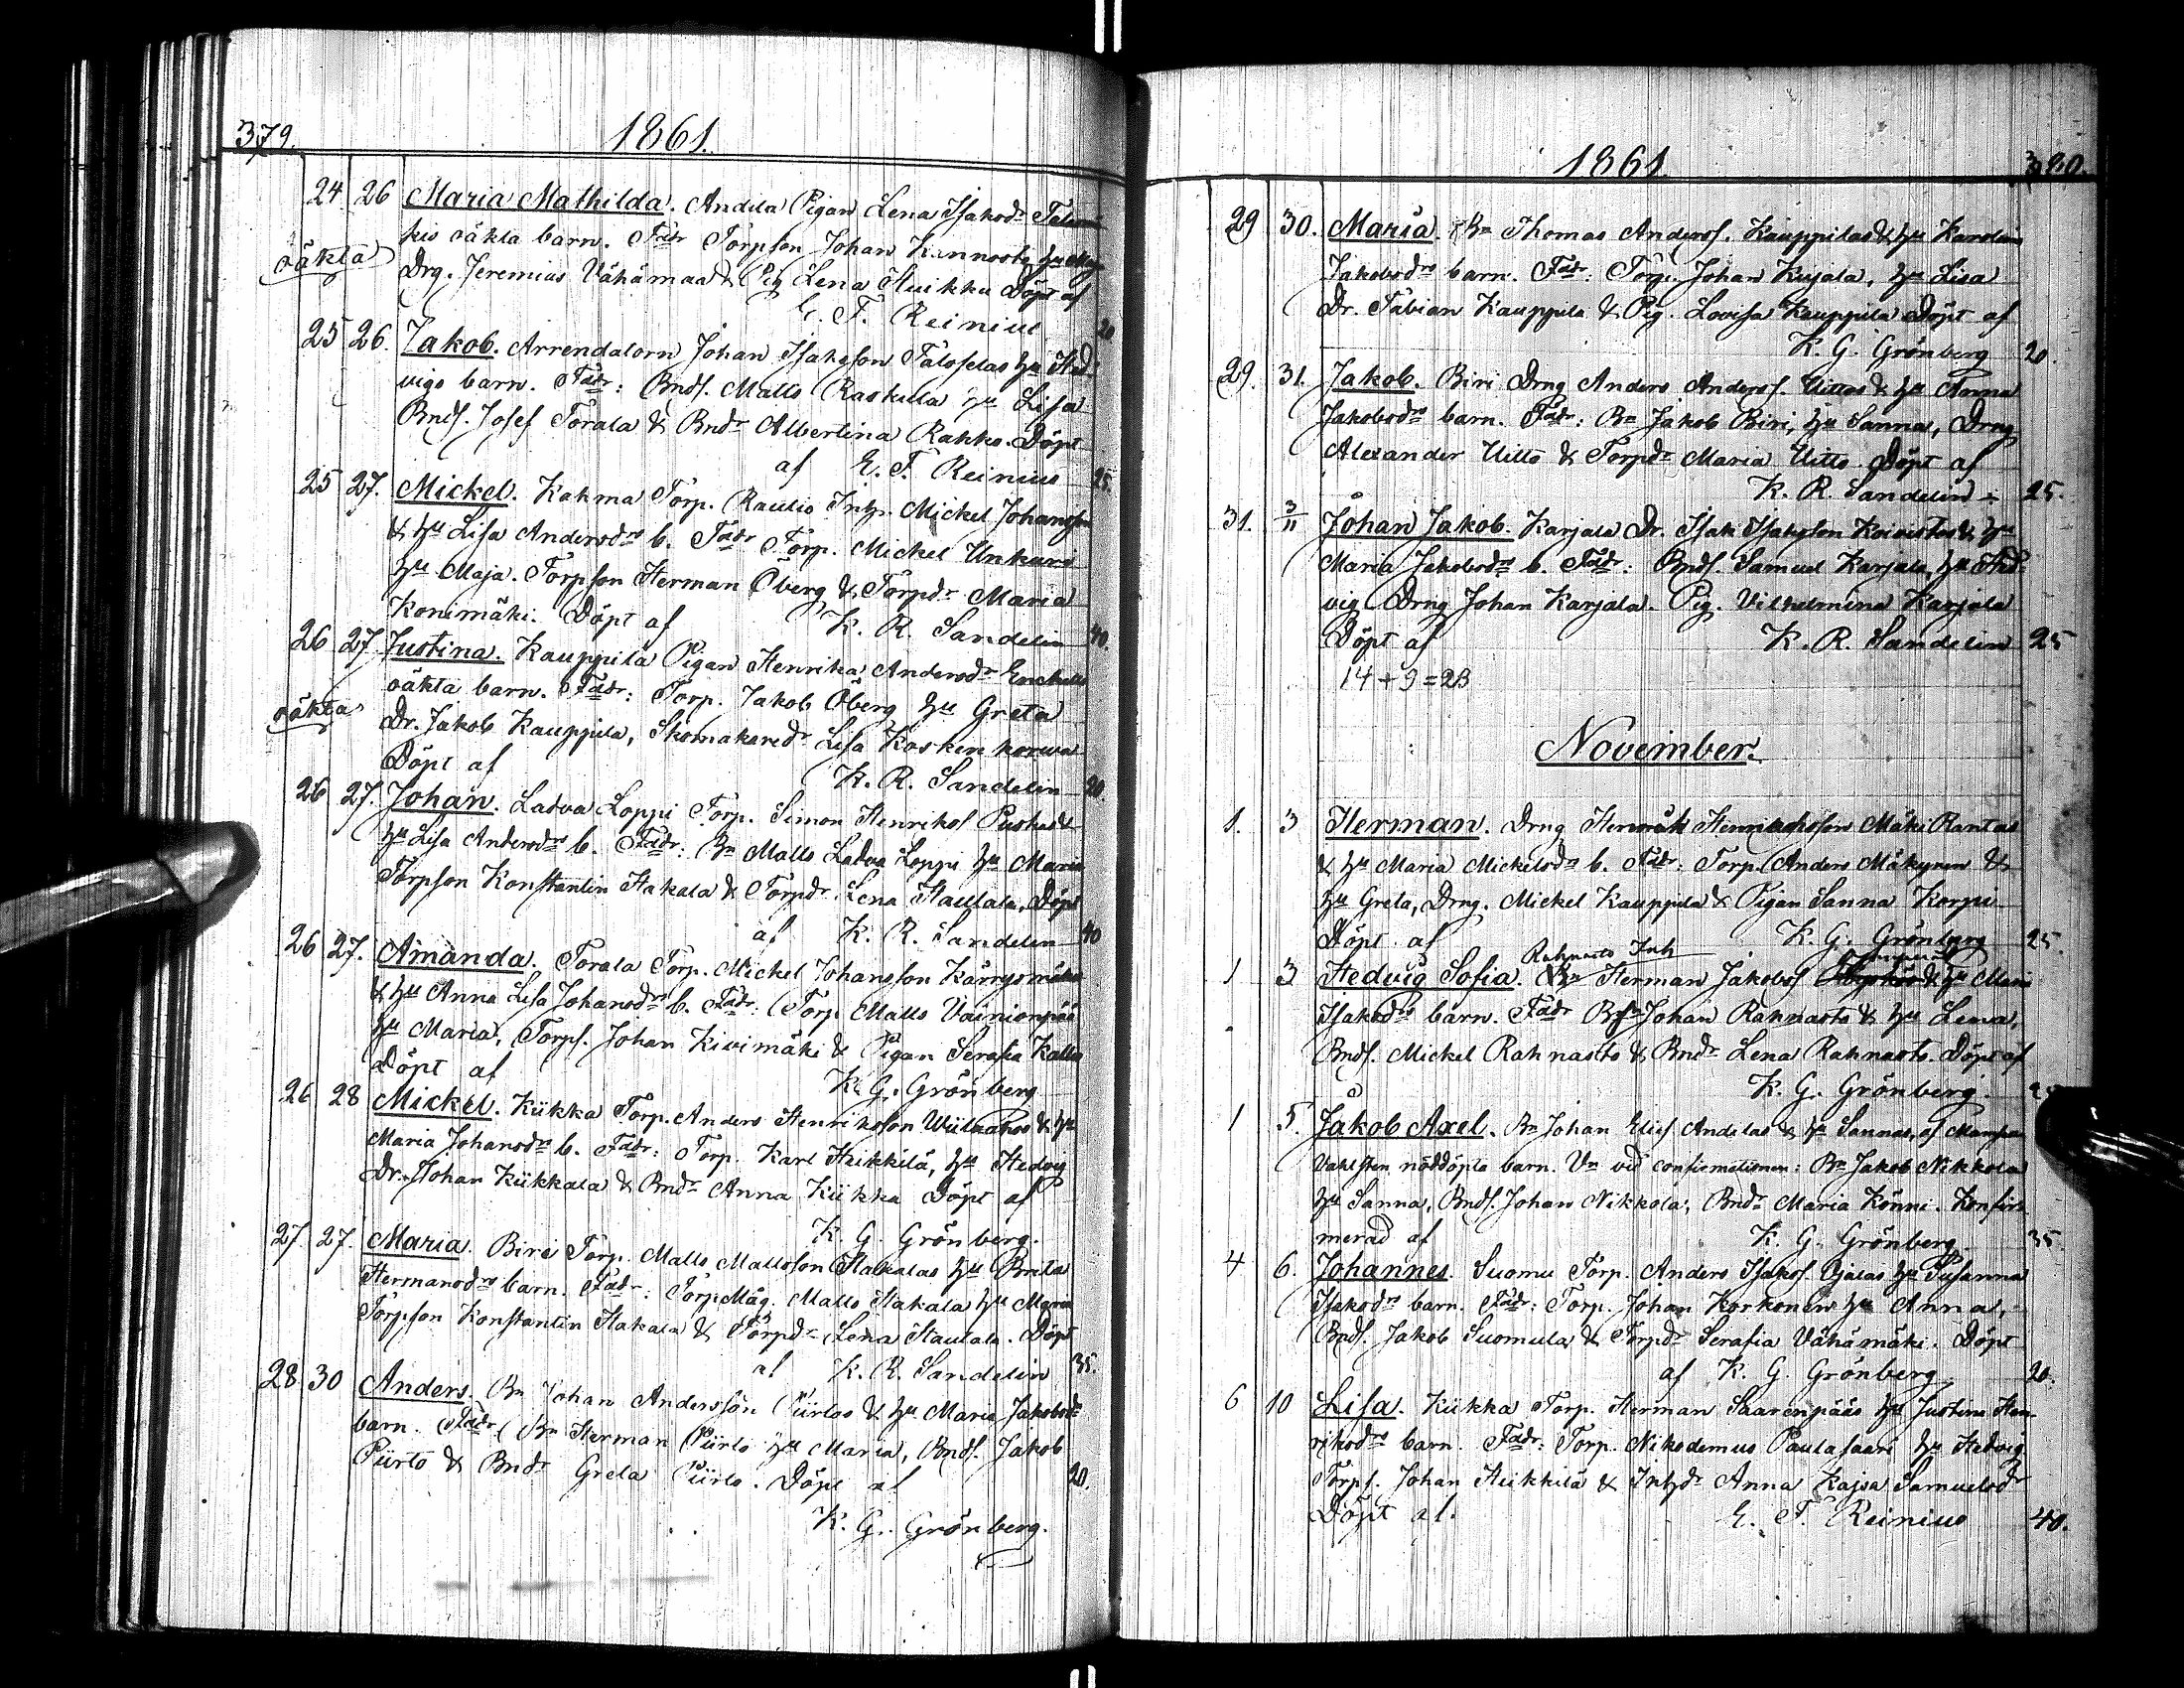 379.
1861.
24. 26 Maria Mathilda. Andila Pigan Lena Isaksdr
oäkta kis oäkta barn. Fadr Torpson Johan Kannosto hu
Drg. Jeremias Vähämaa & Pig Lena Huikku Döpt af
E. F. Reinius 20
25 26. Jakob. Arrendatorn Johan Isaksson Taloselas hu Hed-
vigs barn. Fadr: Bnds. Matts Raskulla hu Lisa
Bnds. Josef Torala & Bndr Albertina Rahko. Döpt
af E. F. Reinius 25.
25 27. Mickel. Kahma Torp. Raulio Inh. Mickel Johansson
& hu Lisa Andersdrs b. Fadr Torp. Mickel Unkuri
hu Maja. Torpson Herman Öberg & Torpdr Maria
Konimäki. Döpt af K. R. Sandelin 40.
26 27 Justina. Kauppila Pigan Henrika Andersdr
oäkta oäkta barn. Fadr: Torp. Jakob Öberg hu Greta
Dr. Jakob Kauppila, Skomakaredr Lisa Koskenkorva
Döpt af K. R. Sandelin 20.
26 27. Johan. Ladva Loppi Torp. Simon Henrikss
hu Lisa Andersdrs b. Fadr: Bn Matts Ladva Loppi hu Maria
Torpson Konstantin Hakala & Torpdr Lena Hautala. Döpt
af K. R. Sandelin 40
26 27. Amanda. Torala Torp. Mickel Johansson
& hu Anna Lisa Johansdrs b. Fadr: Torp Matts Vainionpää
hu Maria, Torps. Johan Kivimäki & Pigan Serafia Kallio
Döpt af K. G. Grönberg
26 28 Mickel. Kiikka Torp. Anders Henriksson & hu
Maria Johansdrs b. Fadr: Torp. Karl Heikkilä, hu Hedvig
Dr. Johan Kiikkala & Bndr Anna Kiikka Döpt af
K. G. Grönberg.
27. 27. Maria. Biri Torp. Matts Mattsson Hakalas hu Brita
Hermansdrs barn. Fadr: Torp.Måg. Matts Hakala hu Maria
Torpson Konstantin Hakala & Torpdr Lena Hautala. Döpt
af K. R. Sandelin 35.
28 30 Anders. Bn Johan Andersson Piirtos & hu Maria Jakobsdrs
barn. Fadr Bn Herman Piirto hu Maria, Bnds. Jakob
Piirto & Bndr Greta Piirto. Döpt af 20.
K. G. Grönberg.
1861.
380.
29 30. Maria. Bn Thomas Anderss. Kauppilas & hu Karolina
Jakobsdrs barn. Fadr: Torp. Johan Kujala, hu Lisa
Dr. Fabian Kauppila & Pig. Lovisa Kauppila Döpt af
K. G. Grönberg 20.
29. 31. Jakob. Biri Drng Anders Anderss. Uittos & hu Anna
Jakobsdrs barn. Fadr: Bn Jakob Biri, hu Sanna, Drng
Alexander Uitto & Torpdr Maria Uitto. Döpt af
K. R. Sandelin 25.
31. 3/11 Johan Jakob. Karjala Dr. Isak Isaksson Koivistos & hu
Maria Jakobsdrs b. Fadr: Bnds. Samuel Karjala, hu Hed-
vig Drng Johan Karjala. Pig. Vilhelmina Karjala
Döpt af K. R. Sandelin 25
14 + 9 = 23
November.
1. 3 Herman. Drng Henrik Henriksson Mäki Rantas
& hu Maria Mickelsdrs b. Fadr: Torp. Anders Mäkynen &
hu Greta, Drng. Mickel Kauppila & Pigan Sanna Korpi
Döpt af K. G. Grönberg 25
Rahnasto Inh
1 3 Hedvig Sofia. Bn Herman Jakobss & hu Maria
Isaksdrs barn. Fadr Johan Rahnasto & hu Lena,
Bnds. Mickel Rahnasto & Bndr Lena Rahnasto. Döpt af
K. G. Grönberg.
1 5. Jakob Axel. Bn Johan Elies Andilas & hu Sannas, af
Vahlsten nöddöpta barn. Vn vid confirmationen: Bn Jakob Nikkola
hu Sanna, Bnds. Johan Nikkola, Bndr Maria Könni. Konfir-
merad af K. G. Grönberg 35.
4 6. Johannes. Suomu Torp. Anders Isakss. Ojalas hu Susanna
Isaksdrs barn. Fadr: Torp. Johan Korkonen hu Anna,
Bnds. Jakob Suomula & Torpdr Serafia Vähämäki. Döpt
af K. G. Grönberg 20.
6 10 Lisa. Kiikka Torp. Herman Saarenpääs hu Justina Hen-
riksdrs barn. Fadr: Torp. Nikodemus Paulasaari hu Hedvig
Torps. Johan Heikkilä & Inhdr Anna Kajsa Samuelsdr
Döpt af. E. F. Reinius 40.